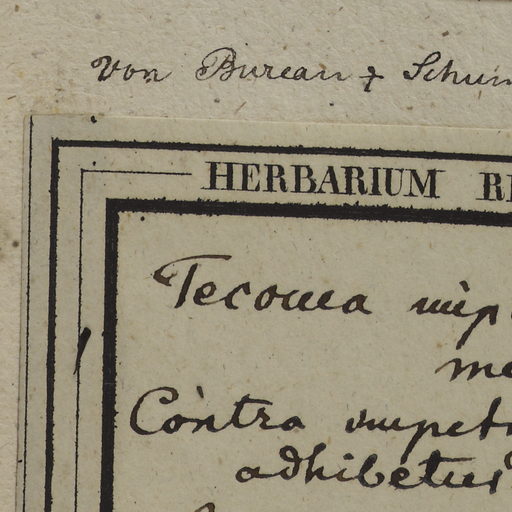 von Bureau & Schum
HERBARIUM RE
Tecoma imp
me
Contra impet
adhibetur